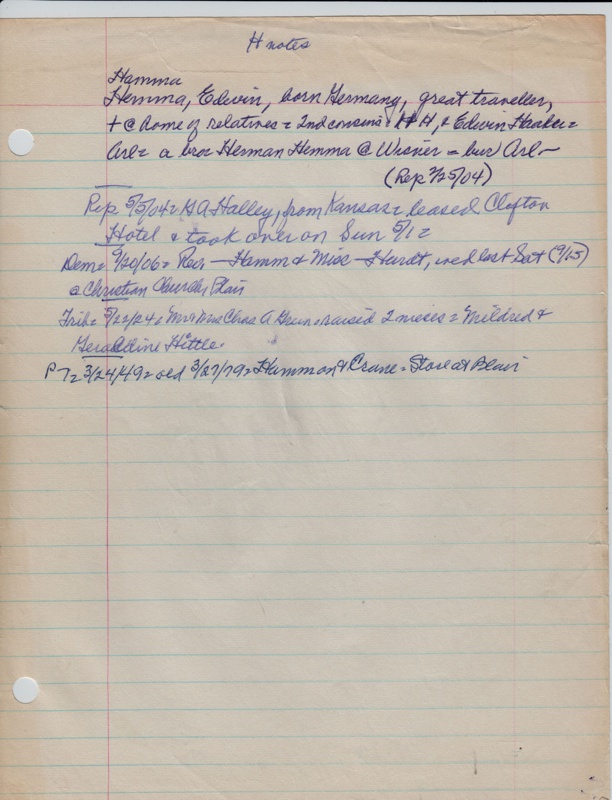 H notes
Hamma
Hemma, Edwin, born Germany, great traveller,
+ @ home of relatives = 2nd cousins = H H, & Edwin Haaker =
Arl = a bro = Herman Hemma @ Wisner = bur Arl -
(Rep 3/25/04)
Rep 5/5/04 = G A Halley, from Kansas = leased Clifton
Hotel & took over on Sun 5/1 =
Dem = 9/20/06 = Rev. — Hamm & Miss — Hurdt, wed last Sat (9/15)
@ Christian Church, Blair
Trib = 5/22/24 = Mr & Mrs Chas A = raised 2 nieces = Mildred &
Geraldine Hittle
P T = 3/24/49 = old 3/27/79 = Hammon & Crane = Store at Blair